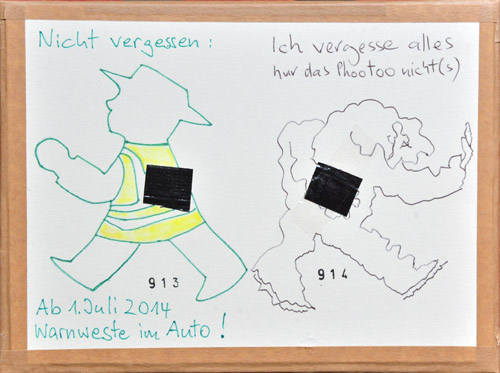 Nicht vergessen:
Ich vergesse alles
nur das Phootoo nicht(s)
913
914
Ab 1. Juli 2014
Warnweste im Auto!